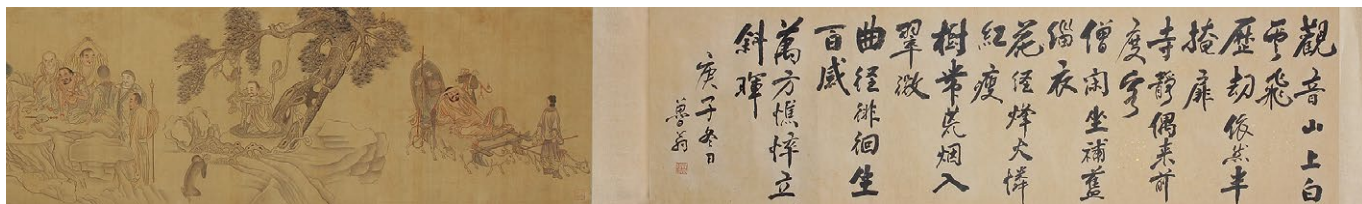 觀音山上白
雲飛
歷劫依然半
掩扉
寺靜偶来前
度客
僧閑坐補舊
緇衣
花經烽火憐
紅瘦
樹帶荒烟入
翠微
曲徑徘徊生
百感
萬方憔悴立
斜暉
庚子冬日
魯翁